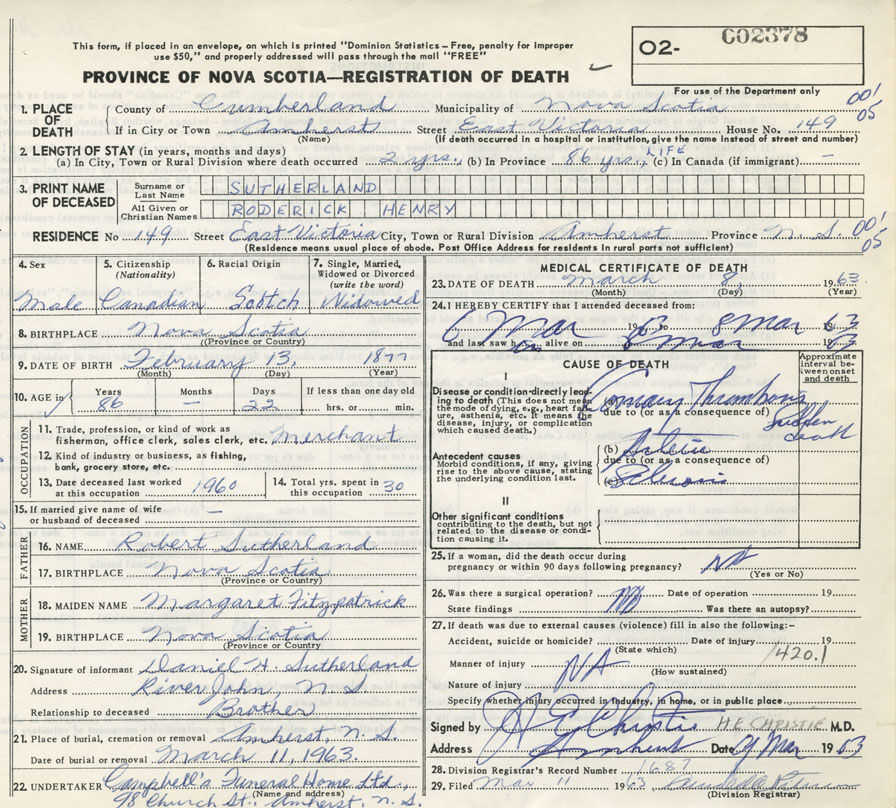 This form, if placed in an envelope, on which is printed "Dominion Statistics – Free, penalty for improper
use $50," and properly addressed will pass through the mail "FREE"
02- C02378
PROVINCE OF NOVA SCOTIA—REGISTRATION OF DEATH
For use of the Department only
1. PLACE OF DEATH { County of Cumberland Municipality of Nova Scotia 001
If in City or Town Amherst Street East Victoria House No. 149 05
(Name) (If death occurred in a hospital or institution, give the name instead of street and number)
2. LENGTH OF STAY (in years, months and days)
(a) In City, Town or Rural Division where death occurred 2 yrs., (b) In Province 86 yrs., LIFE (c) In Canada (if immigrant) –
3. PRINT NAME OF DECEASED
Surname or Last Name SUTHERLAND
All Given or Christian Names RODERICK HENRY
RESIDENCE No 149 Street East Victoria City, Town or Rural Division Amherst Province N. S. 001 05
(Residence means usual place of abode. Post Office Address for residents in rural parts not sufficient)
4. Sex Male
5. Citizenship (Nationality) Canadian
6. Racial Origin Scotch
7. Single, Married, Widowed or Divorced (write the word) Widowed
8. BIRTHPLACE Nova Scotia
(Province or Country)
9. DATE OF BIRTH February 13, 1877
(Month) (Day) (Year)
10. AGE in { Years 86 Months – Days 22 If less than one day old hrs. or min.
OCCUPATION
11. Trade, profession, or kind of work as
fisherman, office clerk, sales clerk, etc. Merchant
12. Kind of industry or business, as fishing,
bank, grocery store, etc.
13. Date deceased last worked at this occupation 1960
14. Total yrs. spent in this occupation 30
15. If married give name of wife
or husband of deceased –
FATHER
16. NAME Robert Sutherland
17. BIRTHPLACE Nova Scotia
(Province or Country)
MOTHER
18. MAIDEN NAME Margaret Fitzpatrick
19. BIRTHPLACE Nova Scotia
(Province or Country)
20. Signature of informant Daniel H. Sutherland
Address River John, N S
Relationship to deceased Brother
21. Place of burial, cremation or removal Amherst, N. S.
Date of burial or removal March 11, 1963.
22. UNDERTAKER Campbell's Funeral Home Ltd.,
(Name and address)
98 Church St., Amherst, N. S.
MEDICAL CERTIFICATE OF DEATH
23. DATE OF DEATH March 8, 1963.
(Month) (Day) (Year)
24. I HEREBY CERTIFY that I attended deceased from:
6 Mar 196 to 8 Mar 1963
and last saw h alive on 8 Mar 1963
CAUSE OF DEATH
Approximate interval between onset and death
I
Disease or condition directly leading to death (This does not mean
the mode of dying, e.g., heart failure, asthenia, etc. It means the
disease, injury, or complication which caused death.)
(a) Coronary Thrombosis
due to (or as a consequence of)
Sudden death
Antecedent causes
Morbid conditions, if any, giving
rise to the above cause, stating
the underlying condition last.
(b) Arterio
due to (or as a consequence of)
(c) Sclerosis
II
Other significant conditions
contributing to the death, but not
related to the disease or condition causing it.
25. If a woman, did the death occur during
pregnancy or within 90 days following pregnancy? NA
(Yes or No)
26. Was there a surgical operation? No Date of operation 19
State findings Was there an autopsy?
27. If death was due to external causes (violence) fill in also the following:–
Accident, suicide or homicide? Date of injury 19
(State which) 420.1
Manner of injury NA
(How sustained)
Nature of injury
Specify whether injury occurred in industry, in home, or in public place
Signed by H E Christie H.E. CHRISTIE M.D.
Address Amherst Date 9 Mar 1963
28. Division Registrar's Record Number 1687
29. Filed Mar 11 1963
(Division Registrar)